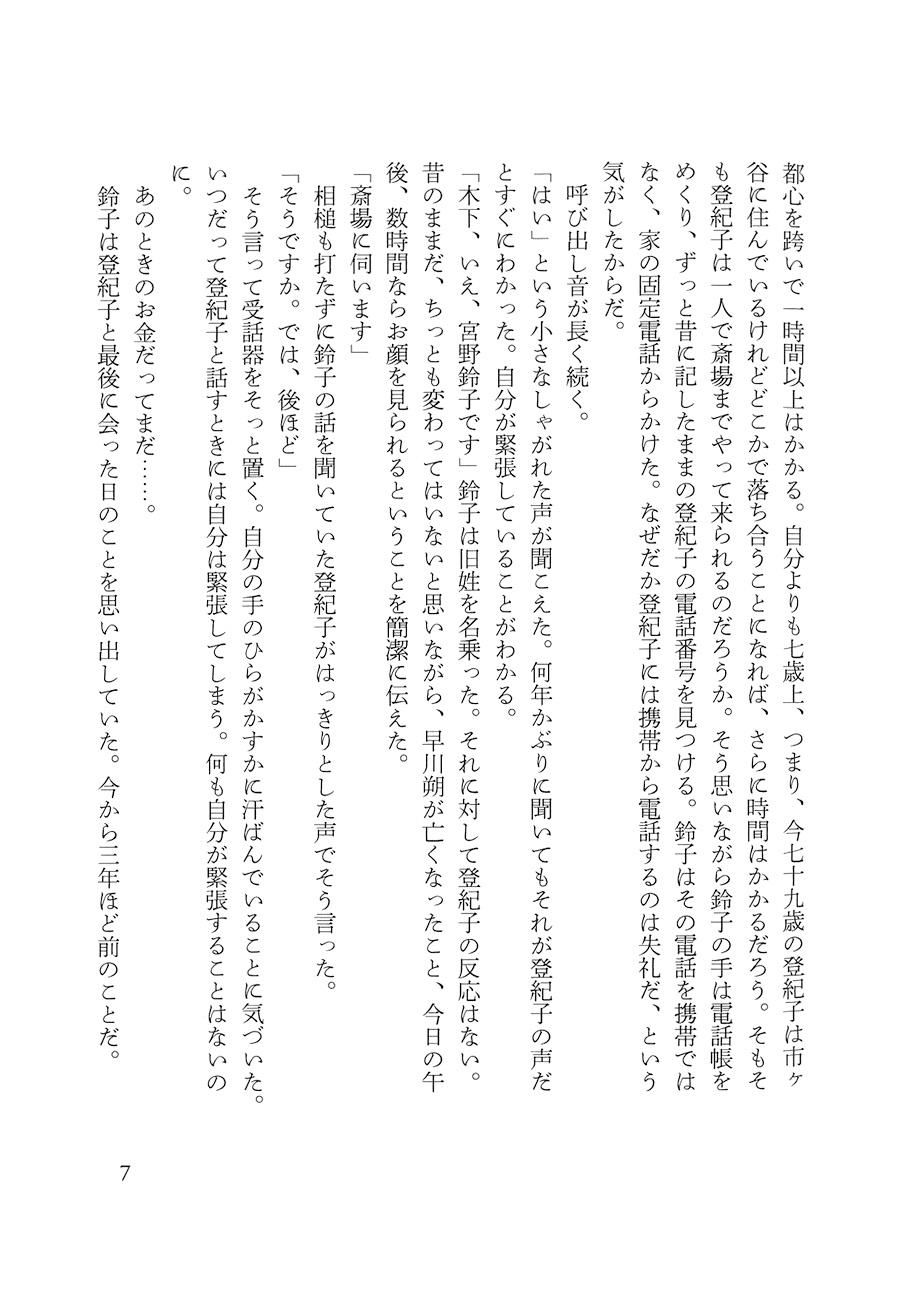 都心を跨いで一時間以上はかかる。自分よりも七歳上、つまり、今七十九歳の登紀子は市ヶ
谷に住んでいるけれどどこかで落ち合うことになれば、さらに時間はかかるだろう。そもそ
も登紀子は一人で斎場までやって来られるのだろうか。そう思いながら鈴子の手は電話帳を
めくり、ずっと昔に記したままの登紀子の電話番号を見つける。鈴子はその電話を携帯では
なく、家の固定電話からかけた。なぜだか登紀子には携帯から電話するのは失礼だ、という
気がしたからだ。
　呼び出し音が長く続く。
「はい」という小さなしゃがれた声が聞こえた。何年かぶりに聞いてもそれが登紀子の声だ
とすぐにわかった。自分が緊張していることがわかる。
「木下、いえ、宮野鈴子です」鈴子は旧姓を名乗った。それに対して登紀子の反応はない。
昔のままだ、ちっとも変わってはいないと思いながら、早川朔が亡くなったこと、今日の午
後、数時間ならお顔を見られるということを簡潔に伝えた。
「斎場に伺います」
　相槌も打たずに鈴子の話を聞いていた登紀子がはっきりとした声でそう言った。
「そうですか。では、後ほど」
　そう言って受話器をそっと置く。自分の手のひらがかすかに汗ばんでいることに気づいた。
いつだって登紀子と話すときには自分は緊張してしまう。何も自分が緊張することはないの
に。
　あのときのお金だってまだ……。
　鈴子は登紀子と最後に会った日のことを思い出していた。今から三年ほど前のことだ。
7